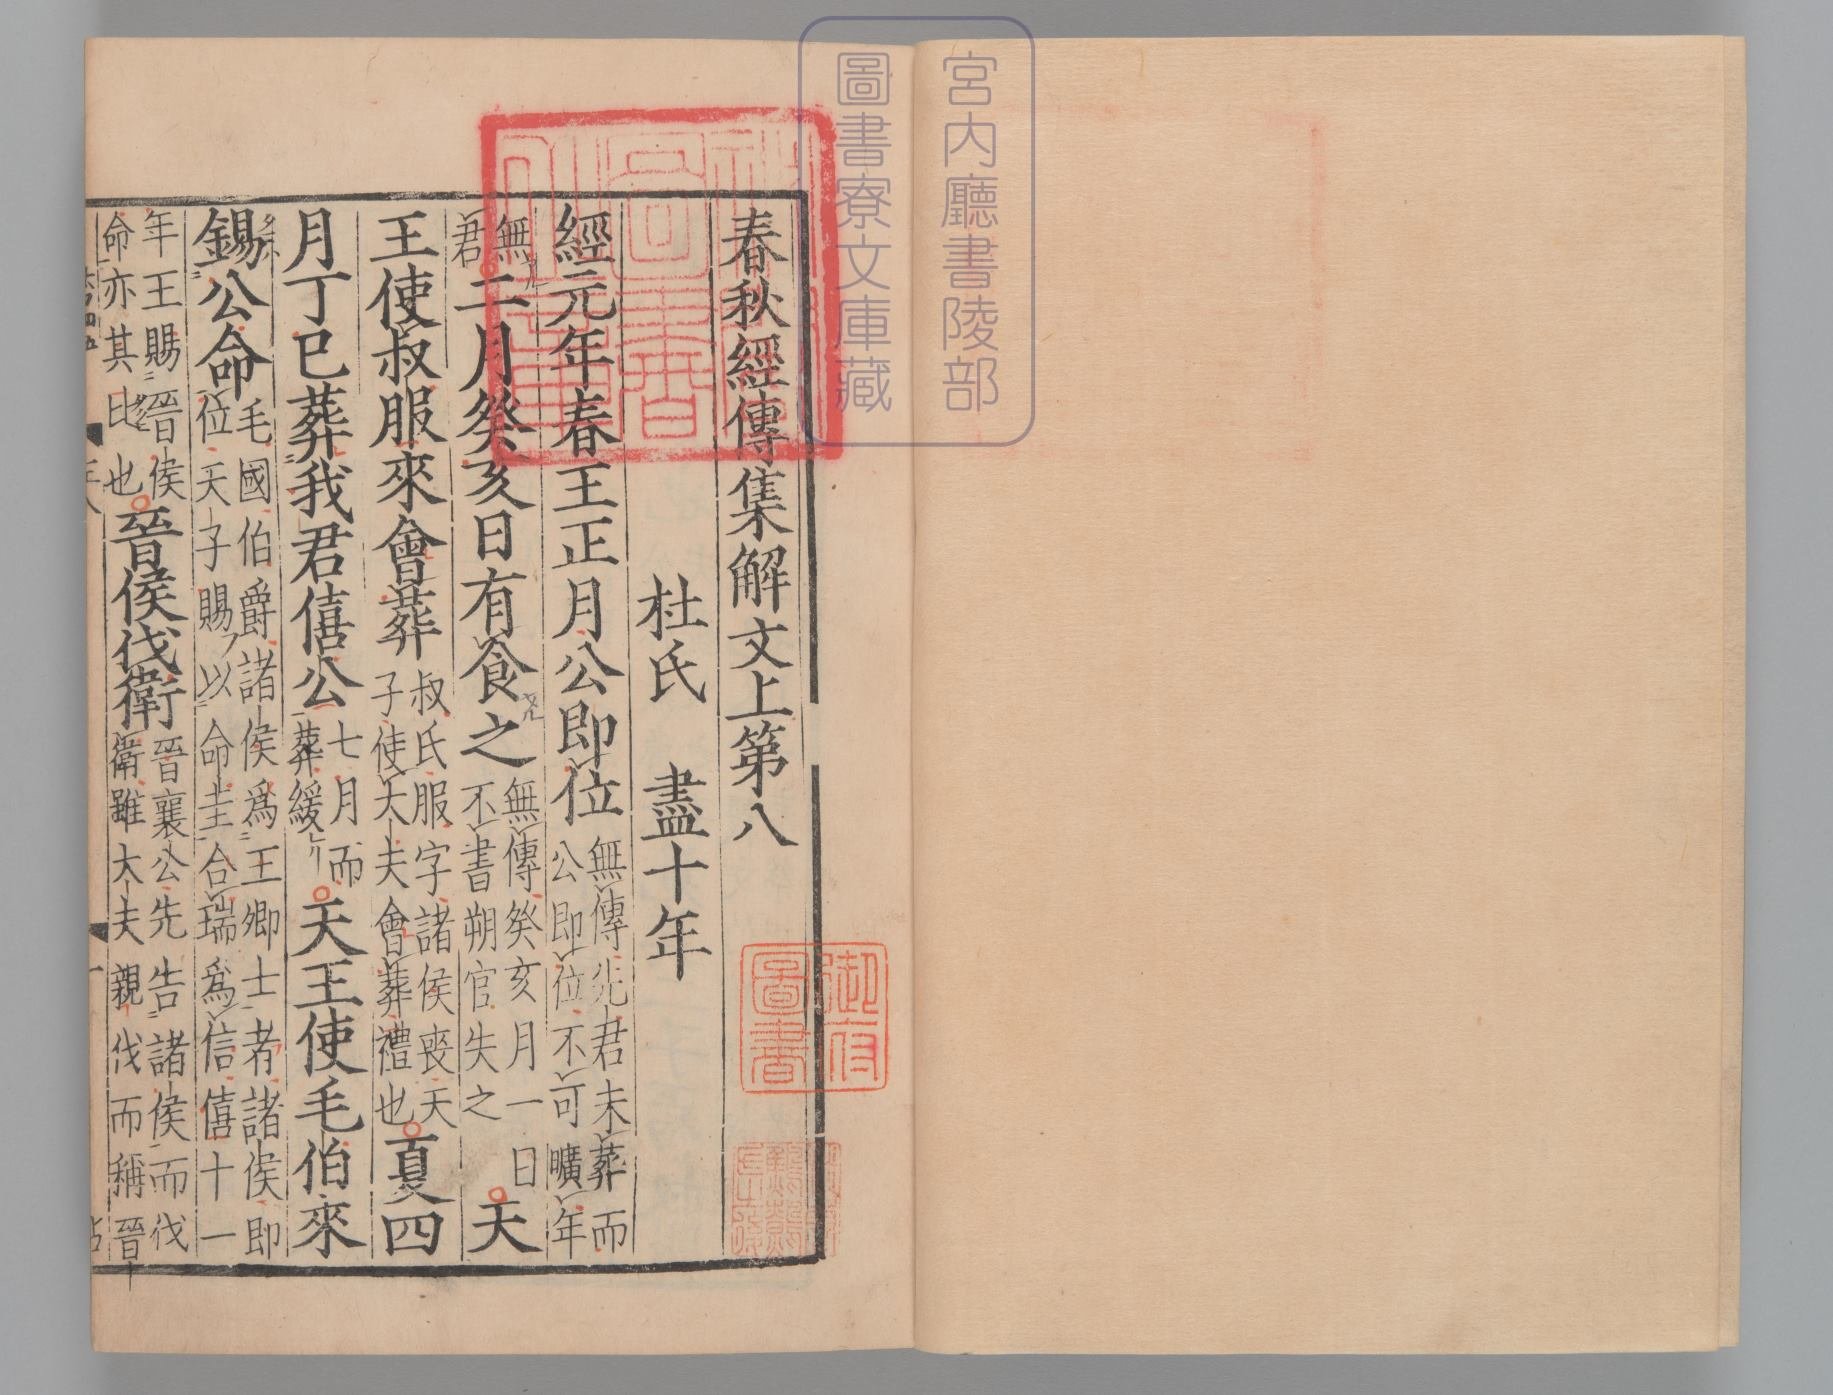 宮内廳書陵部
圖書寮文庫藏
春秋經傳集解文上第八
杜氏 盡十年
經元年春王正月公即位無傳先君未葬而公即位不可曠年
無君二月癸亥日有食之無傳癸亥月一日不書朔官失之天
王使叔服來會葬叔氏服字諸侯喪天子使大夫會葬禮也夏四
月丁巳葬我君僖公七月而葬緩天王使毛伯來
錫公命毛國伯爵諸侯爲王卿士者諸侯即位天子賜以命圭合瑞爲信僖十一
年王賜晉侯命亦其比也晉侯伐衛晉襄公先告諸侯而伐衛雖大夫親伐而稱晉
御府圖書